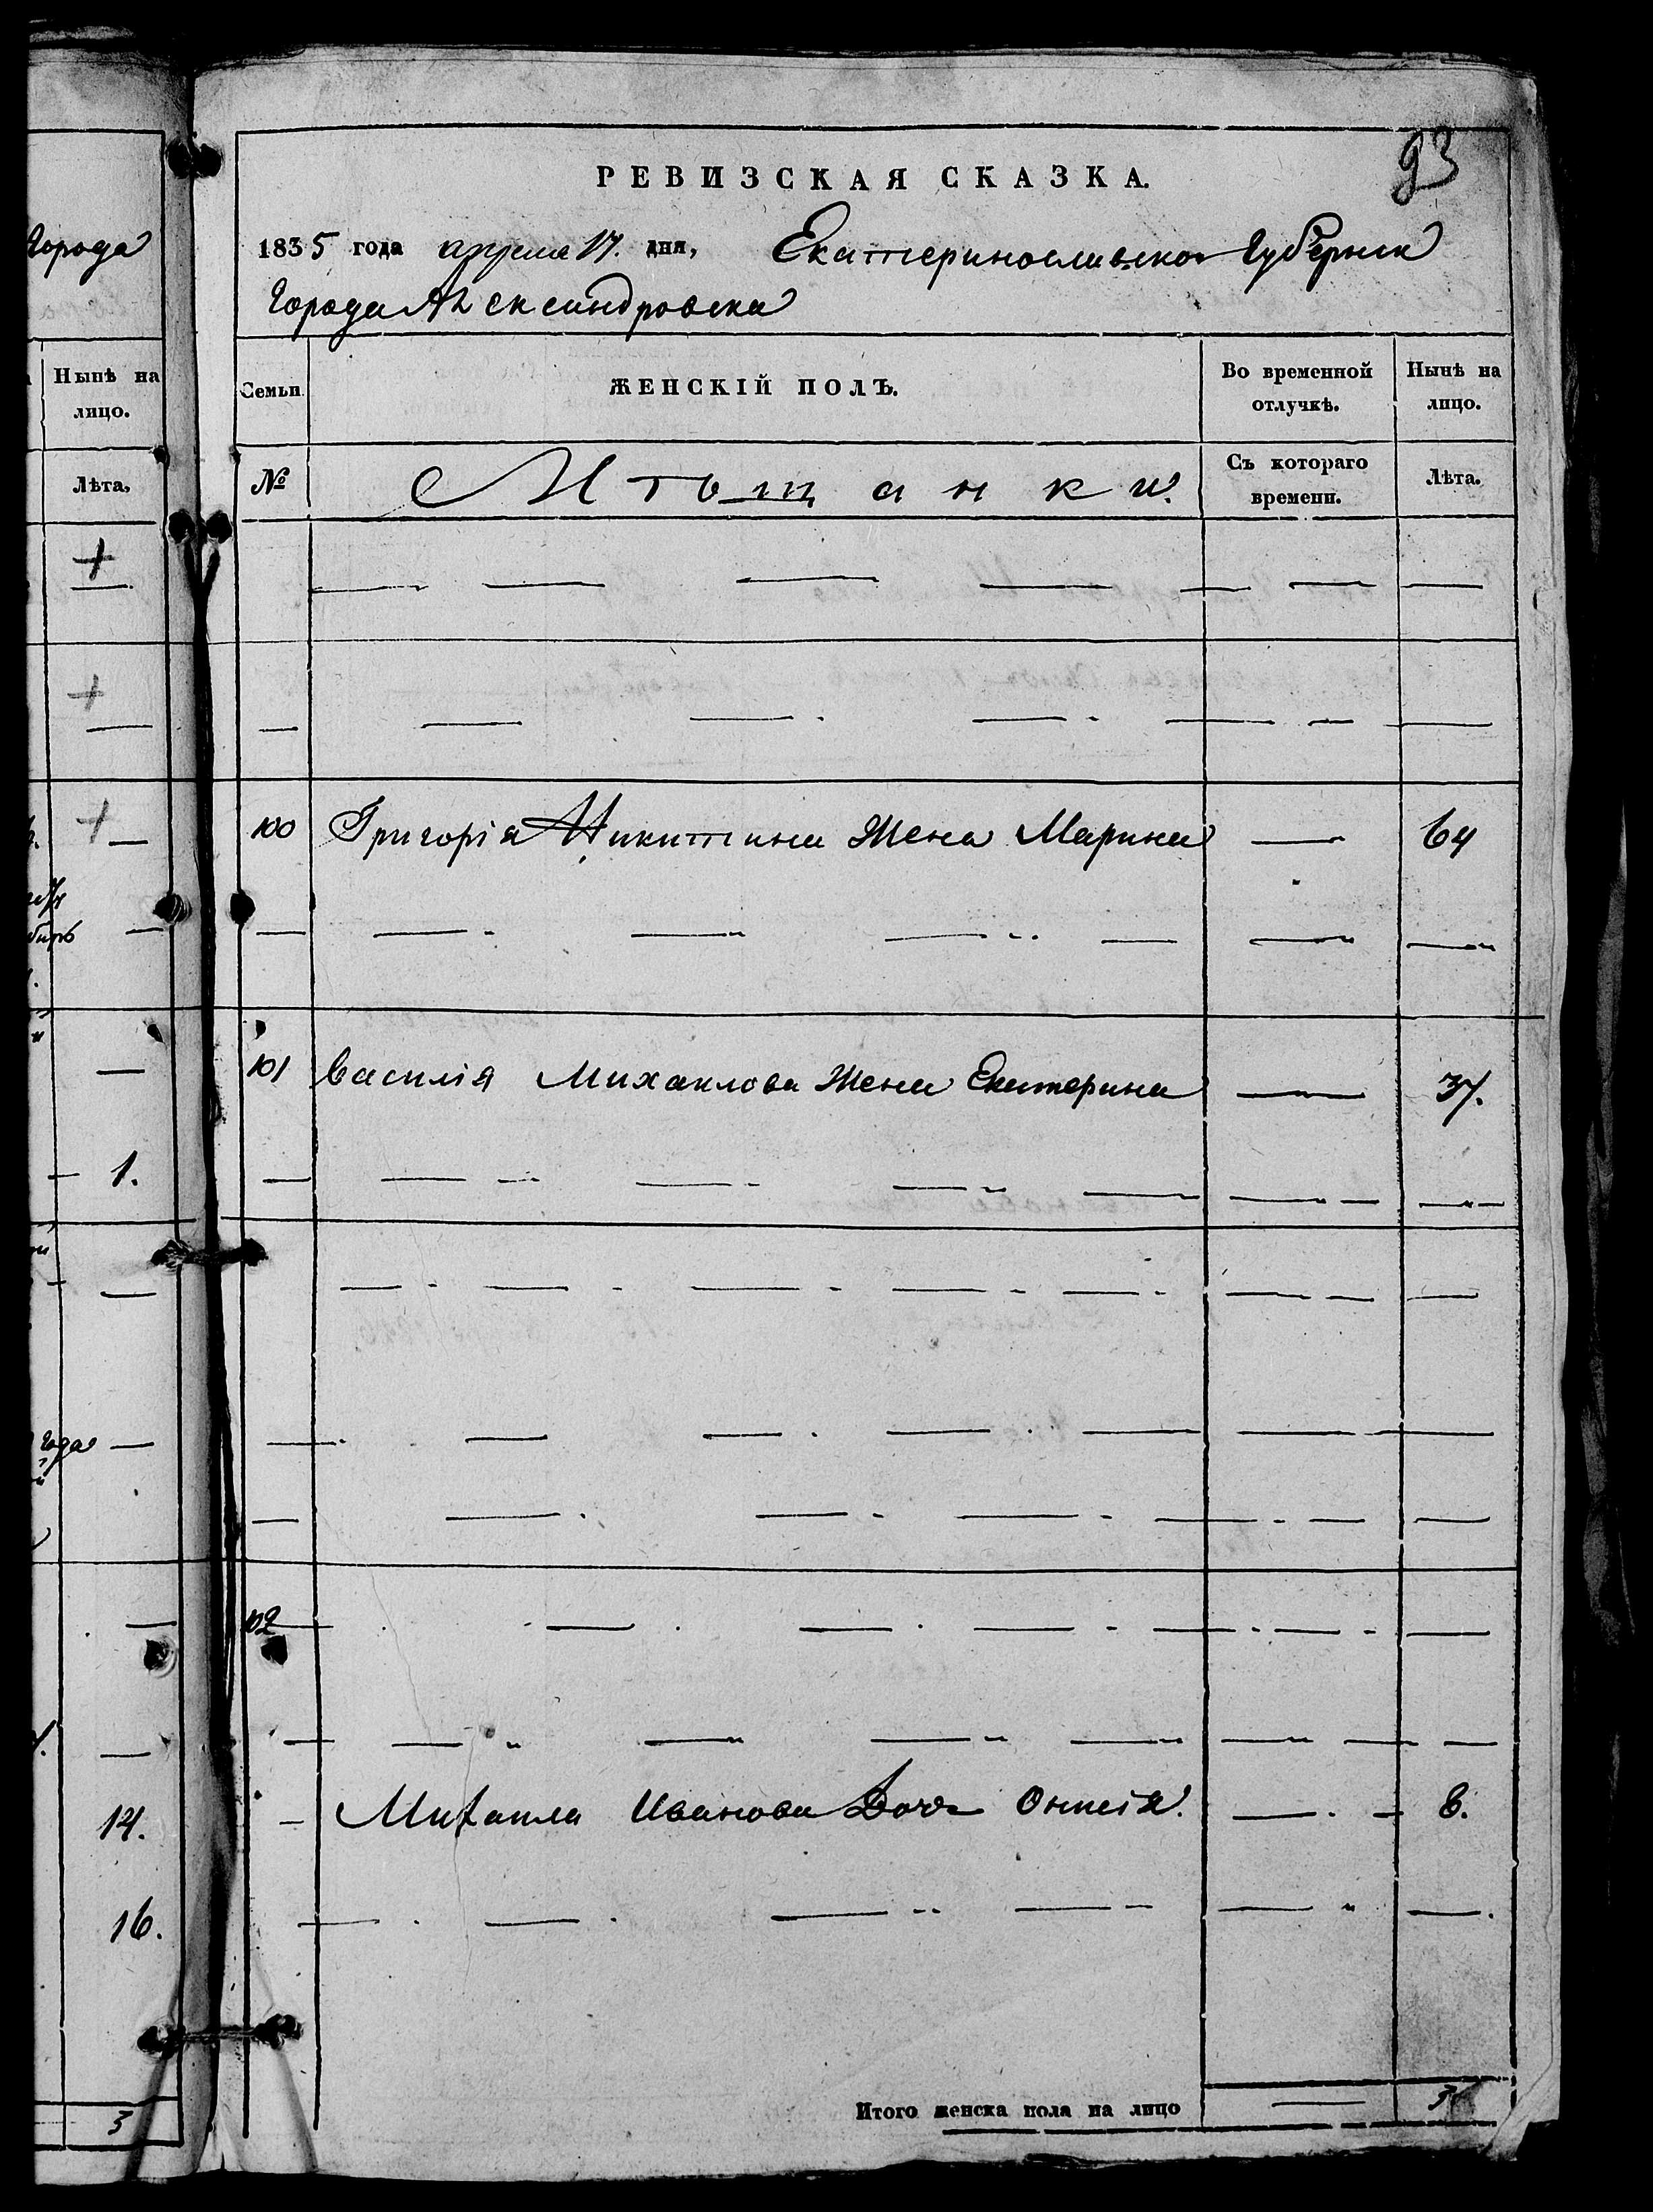 93
РЕВИЗСКАЯ СКАЗКА.
1835 года апреля 17. дня, Екатеринославской Губернiи
Города Александровска
города
Нынѣ на
лицо.
Лѣта,
Семьи
ЖЕНСКIЙ ПОЛЪ.
Во временной
отлучкѣ.
Нынѣ на
лицо.
№
Мѣщанки.
Съ котораго
времени.
Лѣта.
100 Григорiя Никитина жена Марина — 64
101 Василiя Михайлова жена Екатерина — 37.
1.
года
102
14.
— Михаила Иванова Дочь — 8.
16.
3
Итого женска пола на лицо — 3